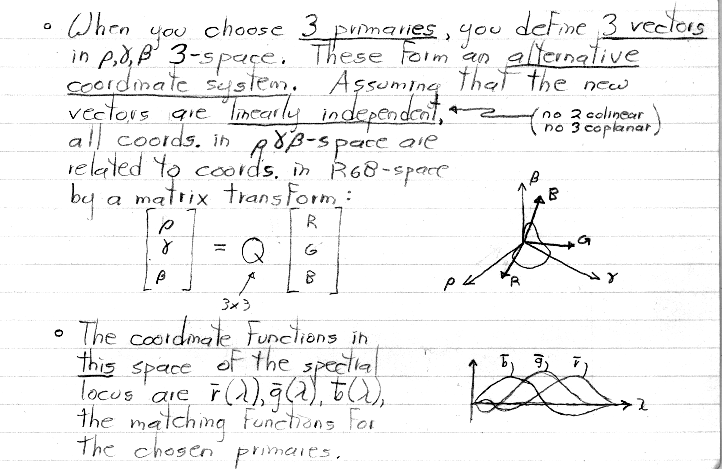 • When you choose 3 primaries, you define 3 vectors
in ρ,γ,β 3-space. These form an alternative
coordinate system. Assuming that the new
vectors are linearly independent, ← (no 2 colinear
no 3 coplanar)
all coords. in ργβ-space are
related to coords. in RGB-space
by a matrix transform:
[ρ γ β] = Q [R G B]
3x3
β
B
G
ρ
R
γ
• The coordinate functions in
this space of the spectral
locus are r̄(λ), ḡ(λ), b̄(λ),
the matching functions for
the chosen primaries.
b̄, ḡ, r̄,
λ